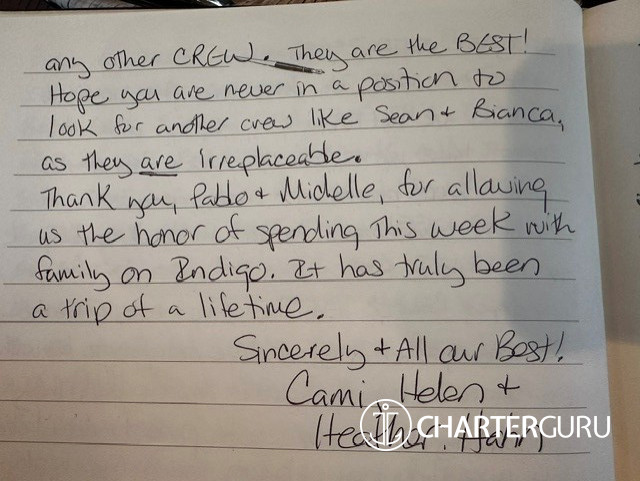 any other CREW. They are the BEST!
Hope you are never in a position to
look for another crew like Sean + Bianca,
as they are irreplaceable.
Thank you, Pablo + Michelle, for allowing
us the honor of spending this week with
family on Indigo. It has truly been
a trip of a lifetime.
Sincerely + All our Best!
Cami, Helen +
Heather
CHARTERGURU